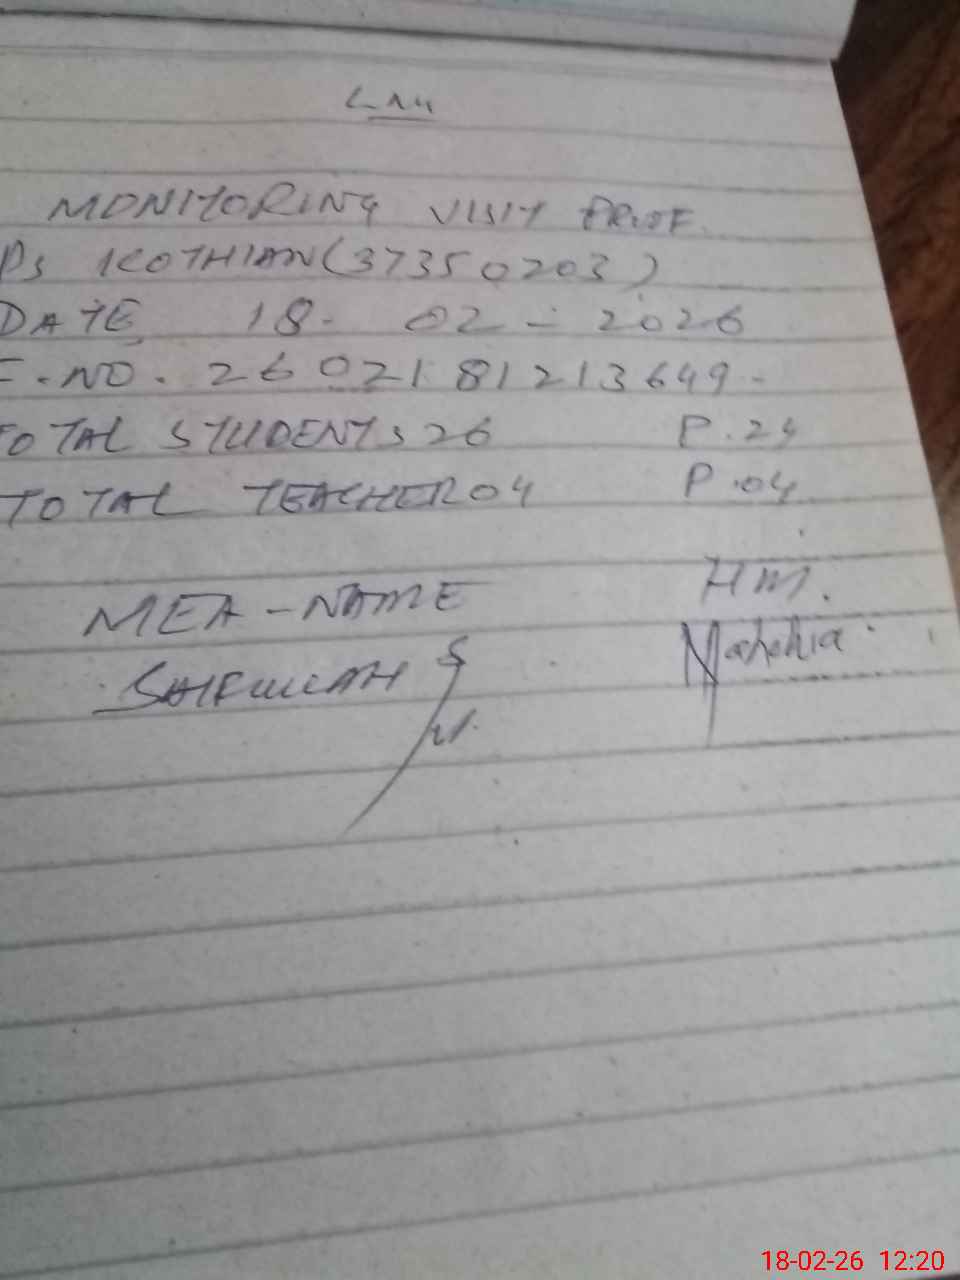 MONITORING VISIT PROOF.
PS KOTHIAN (37350203)
DATE 18-02-2026
E.NO. 260218121 3649-
TOTAL STUDENTS 26 P.24
TOTAL TEACHER 04 P.04
MEA-NAME HM.
SAIFULLAH
18-02-26 12:20